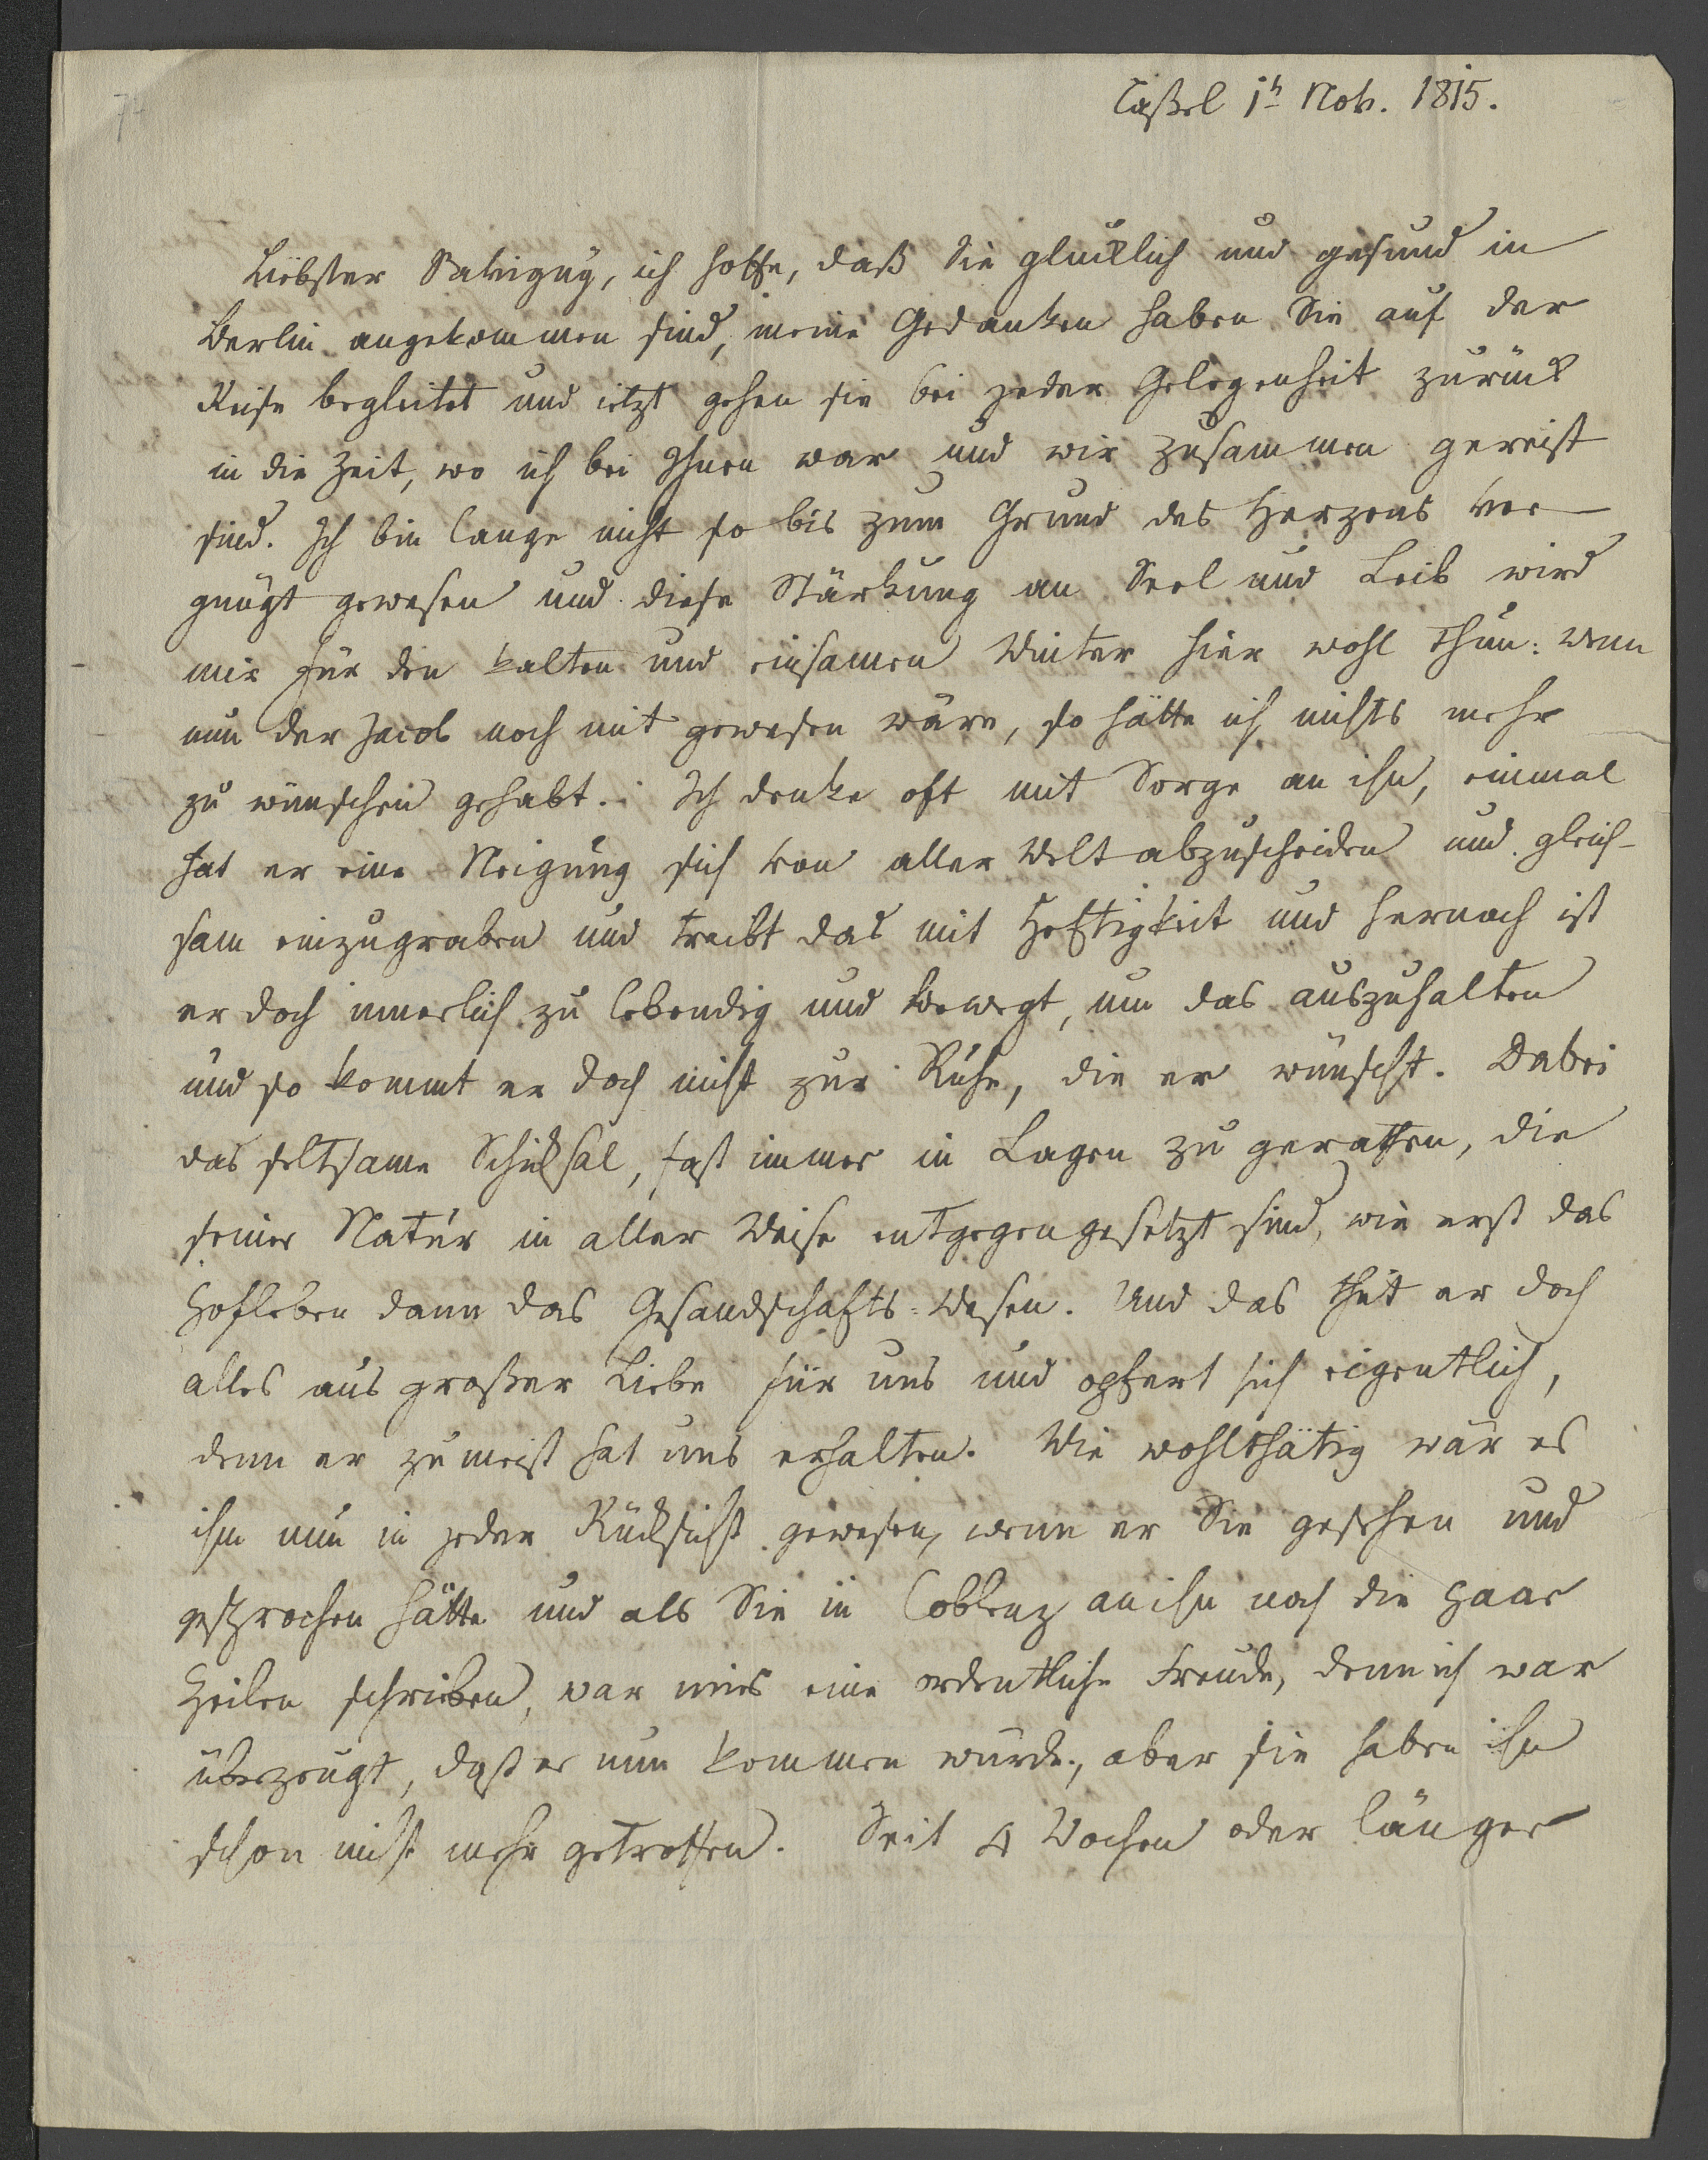 Caßel 1t Nov. 1815.
Liebster Savigny, ich hoffe, daß Sie glücklich und gesund in
Berlin angekommen sind, meine Gedanken haben Sie auf der
Reise begleitet und ietzt gehen sie bei jeder Gelegenheit zurück
in die Zeit, wo ich bei Ihnen war und wir zusammen gereist
sind. Ich bin lange nicht so bis zum Grund des Herzens ver-
gnügt gewesen und diese Stärkung an Seel und Leib wird
mir für den kalten und einsamen Winter hier wohl thun: wenn
nun der Jacob noch mit gewesen wäre, so hätte ich nichts mehr
zu wünschen gehabt. Ich denke oft mit Sorge an ihn, einmal
hat er eine Neigung sich von aller Welt abzuscheiden und gleich-
sam einzugraben und treibt das mit Heftigkeit und hernach ist
er doch innerlich zu lebendig und bewegt, um das auszuhalten
und so kommt er doch nicht zur Ruhe, die er wünscht. Dabei
das seltsame Schicksal, fast immer in Lagen zu gerathen, die
seiner Natur in aller Weise entgegengesetzt sind, wie erst das
Hofleben dann das Gesandschafts-Wesen. Und das thut er doch
alles aus großer Liebe für uns und opfert sich eigentlich,
denn er zumeist hat uns erhalten. Wie wohlthätig wär es
ihm nun in jeder Rücksicht gewesen, wenn er Sie gesehen und
gesprochen hätte und als Sie in Coblenz an ihn noch die paar
Zeilen schrieben, war mirs eine ordentliche Freude, denn ich war
überzeugt, daß er nun kommen würde, aber sie haben ihn
schon nicht mehr getroffen. Seit 4 Wochen oder länger